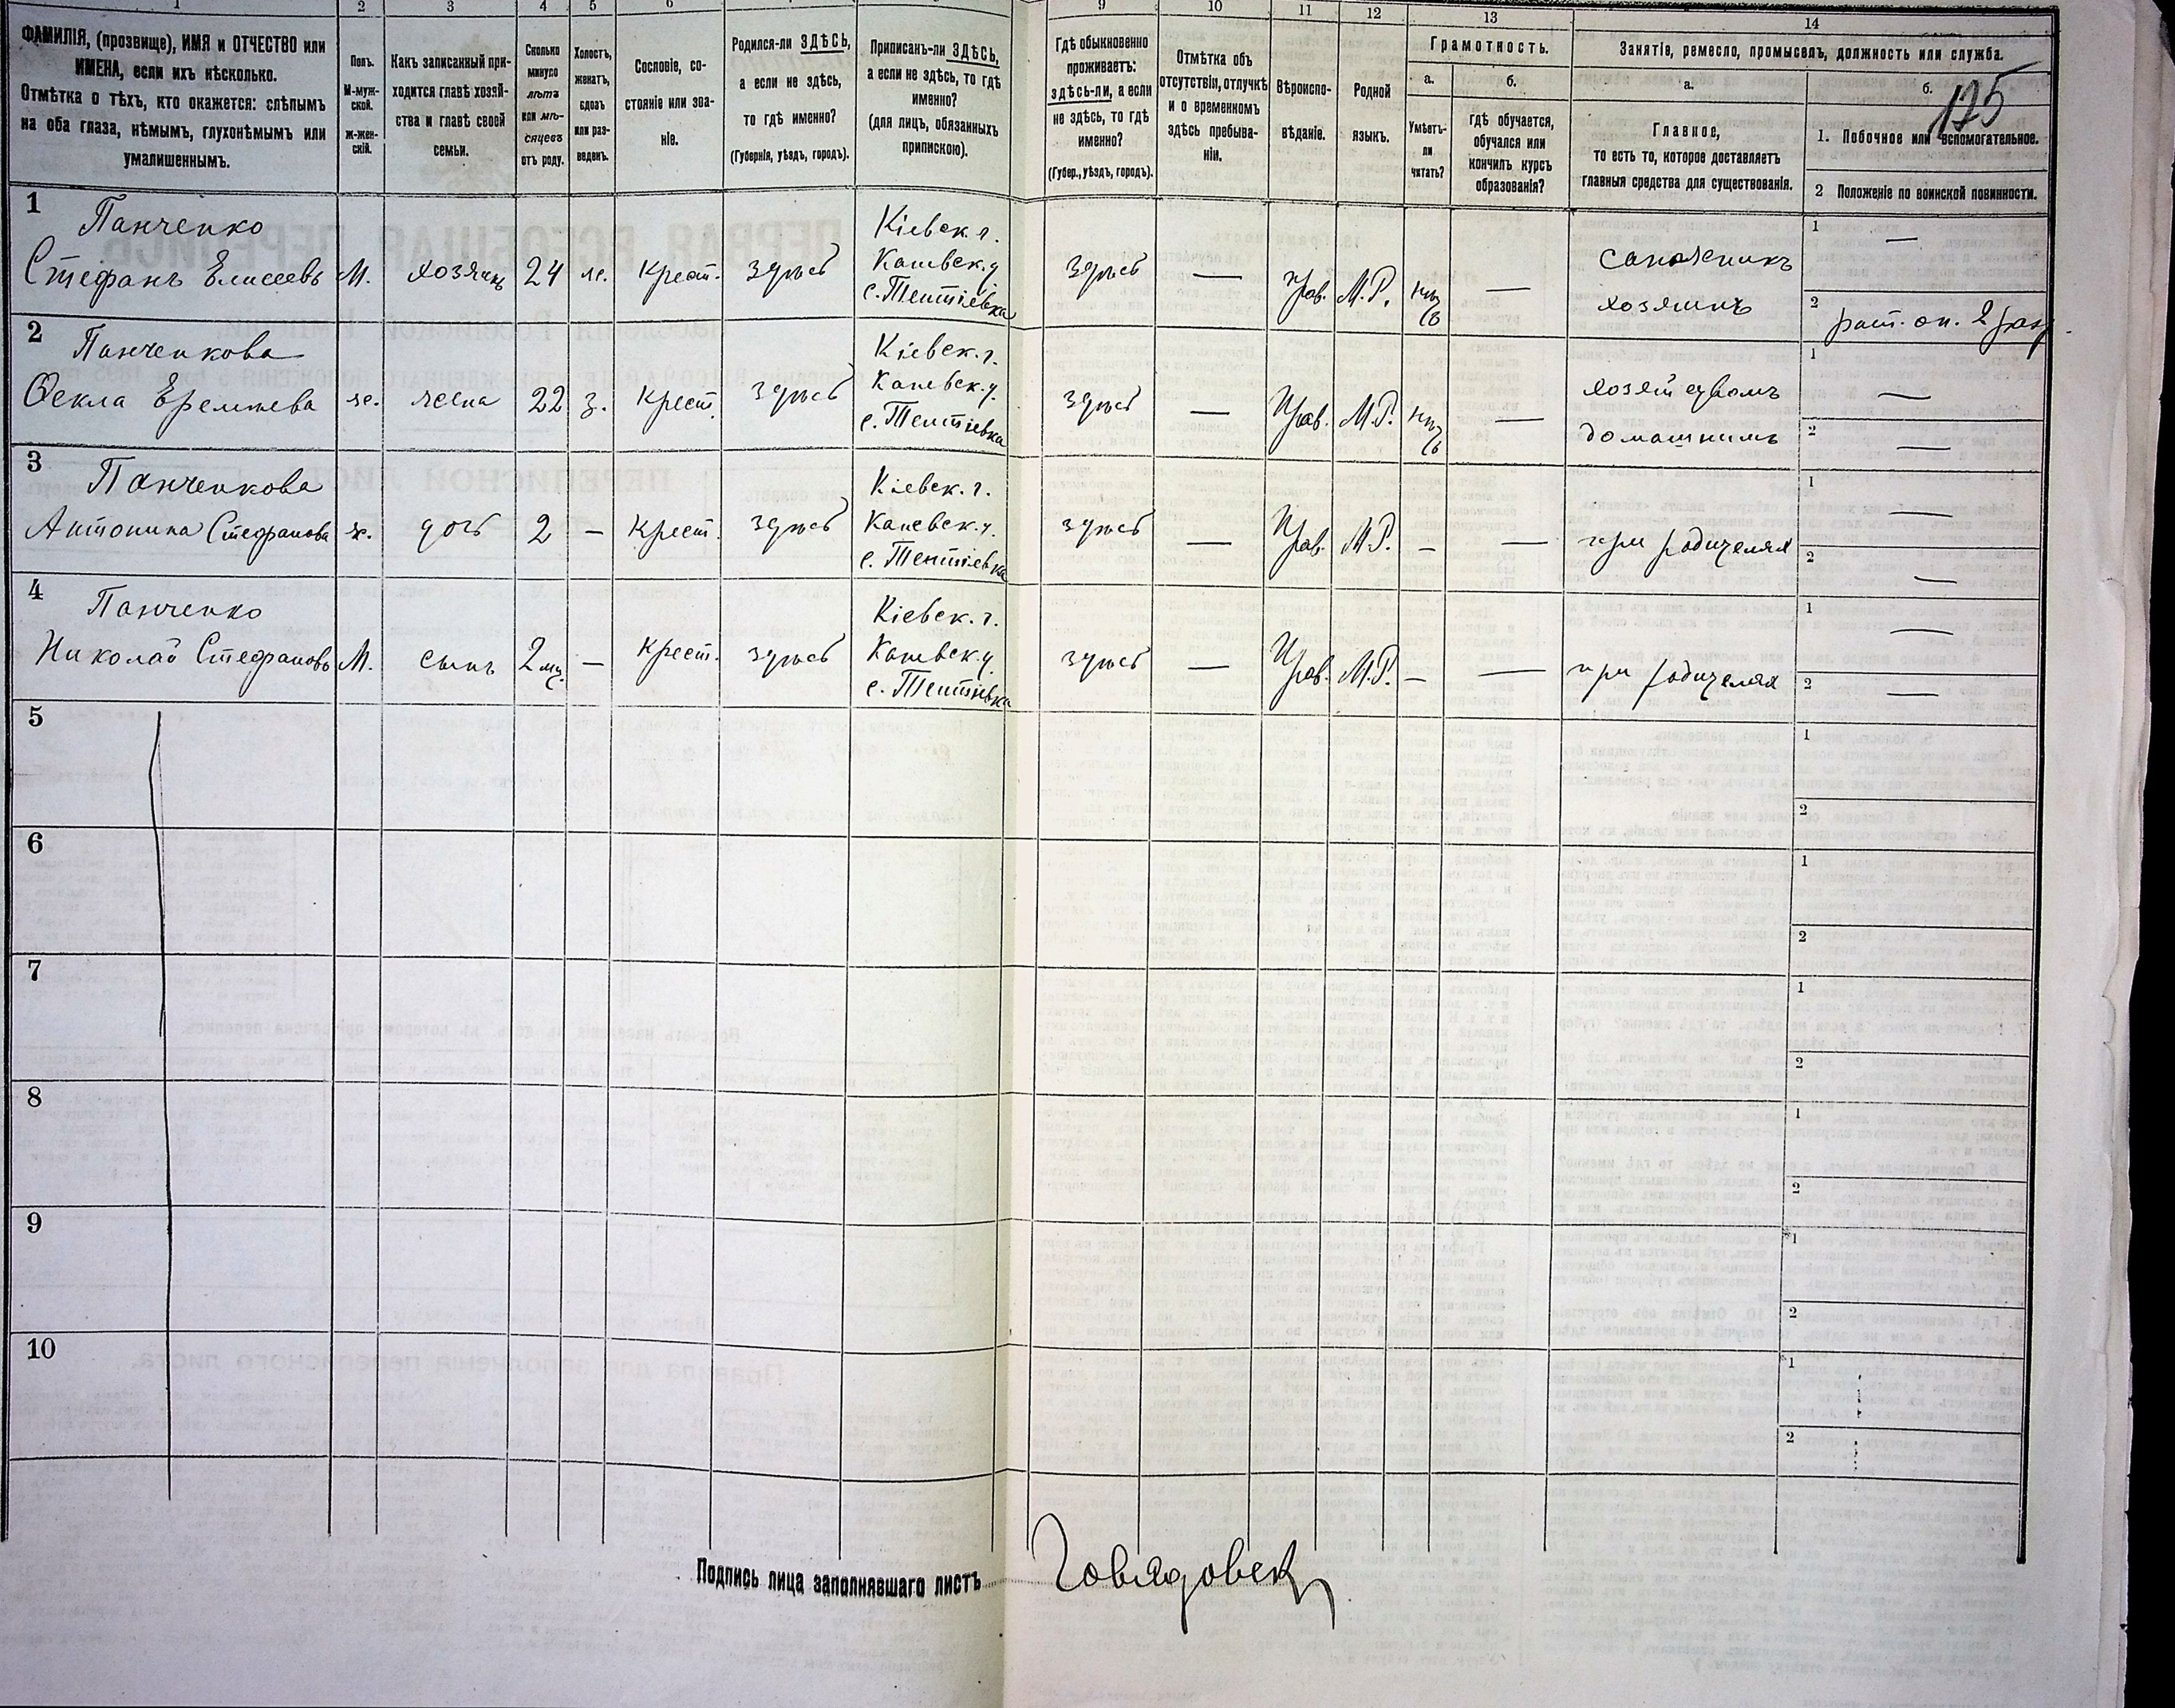 1 2 3 4 5 6 9 10 11 12 13 14
ФАМИЛІЯ, (прозвище), ИМЯ и ОТЧЕСТВО или
ИМЕНА, если ихъ нѣсколько.
Отмѣтка о тѣхъ, кто окажется: слѣпымъ
на оба глаза, нѣмымъ, глухонѣмымъ или
умалишеннымъ.
Полъ.
М-муж-
ской.
ж-жен-
скій.
Какъ записанный при-
ходится главѣ хозяй-
ства и главѣ своей
семьи.
Сколько
минуло
лѣтъ
или мѣ-
сяцевъ
отъ роду.
Холостъ,
женатъ,
вдовъ
или раз-
веденъ.
Сословіе, со-
стояніе или зва-
ніе.
Родился-ли ЗДѢСЬ,
а если не здѣсь,
то гдѣ именно?
(Губернія, уѣздъ, городъ).
Приписанъ-ли ЗДѢСЬ,
а если не здѣсь, то гдѣ
именно?
(для лицъ, обязанныхъ
припискою).
Гдѣ обыкновенно
проживаетъ:
здѣсь-ли, а если
не здѣсь, то гдѣ
именно?
(Губер., уѣздъ, городъ).
Отмѣтка объ
отсутствіи, отлучкѣ
и о временномъ
здѣсь пребыва-
ніи.
Вѣроиспо-
вѣданіе.
Родной
языкъ.
Грамотность.
а.
Умѣетъ-
ли
читать?
б.
гдѣ обучается,
обучался или
кончилъ курсъ
образованія?
Занятіе, ремесло, промыселъ, должность или служба.
а.
Главное,
то есть то, которое доставляетъ
главныя средства для существованія.
б.
125
1. Побочное или вспомогательное.
2 Положеніе по воинской повинности.
1 Панченко
Стефанъ Елисеевъ М. хозяинъ 24 ж. Крест. здѣсь
Кіевск. г.
Каневск. у.
с. Тептіевка
здѣсь — Прав. М.Р. —
сапожникъ
хозяинъ
1 —
2 рат. оп. 2 раз.
2 Панченкова
Ѳекла Еремѣева ж. жена 22 з. Крест. здѣсь
Кіевск. г.
Каневск. у.
с. Тептіевка
здѣсь — Прав. М.Р. —
хозяйством
домашнимъ
1 —
2 —
3 Панченкова
Антонина Стефанова ж. дочь 2 — Крест. здѣсь
Кіевск. г.
Каневск. у.
с. Тептіевка
здѣсь — Прав. М.Р. — —
при родителях
1 —
2 —
4 Панченко
Николай Стефановъ М. сынъ 2 мц. — Крест. здѣсь
Кіевск. г.
Каневск. у.
с. Тептіевка
здѣсь — Прав. М.Р. — —
при родителях
1 —
2 —
5 1
2
6 1
2
7 1
2
8 1
2
9 1
2
10 1
2
Подпись лица заполнявшаго листъ